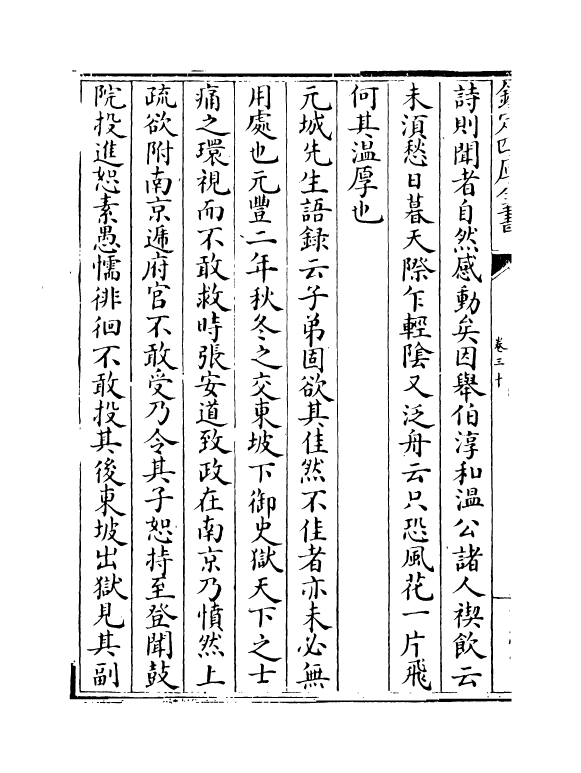 欽定四庫全書
卷三十
詩則聞者自然感動矣因舉伯淳和温公諸人禊飲云
未須愁日暮天際乍輕隂又泛舟云只恐風花一片飛
何其温厚也
元城先生語録云子弟固欲其佳然不佳者亦未必無
用處也元豐二年秋冬之交東坡下御史獄天下之士
痛之環視而不敢救時張安道致政在南京乃憤然上
疏欲附南京遞府官不敢受乃令其子恕持至登聞鼓
院投進恕素愚懦徘徊不敢投其後東坡出獄見其副